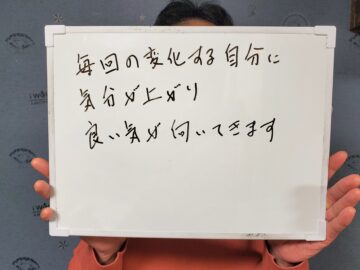 毎回の変化する自分に
気分が上がり
良い気が向いてきます